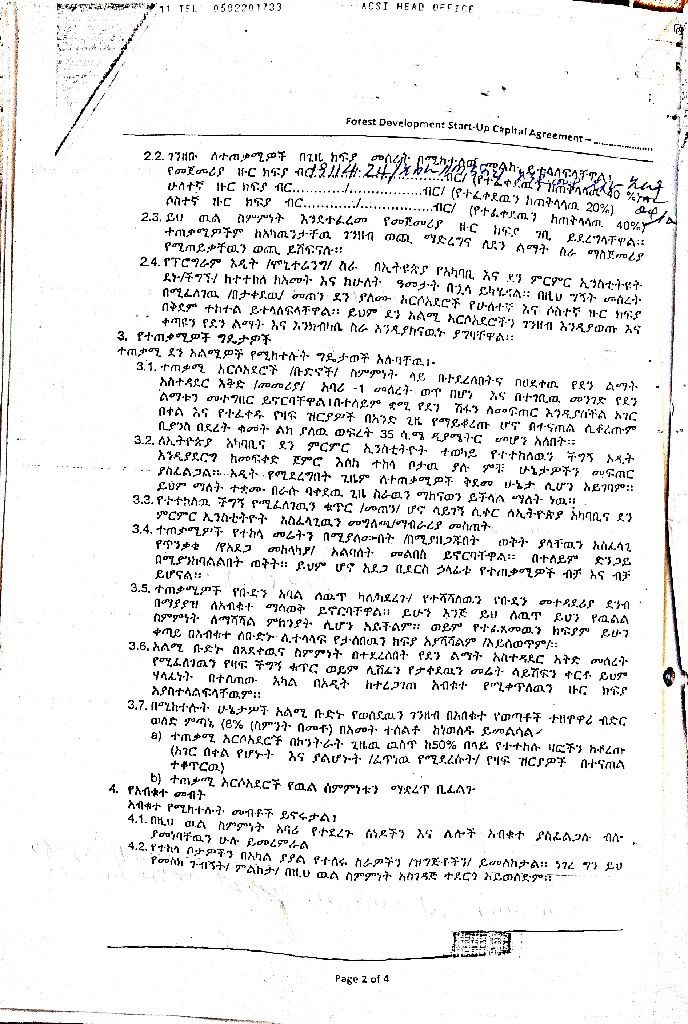 11 TEL 0582201733 ACSI HEAD OFFICE
Forest Development Start-Up Capital Agreement –
2.2. ገንዘቡ ለተጠቃሚዎች በጊዜ ክፍያ መሰረት በሚከታለው መልኩ ይተላለፍላቸዋል፤
የመጀመሪያ ዙር ክፍያ ብር ብር/ (የተፈቀደዉን ከጠቅላላዉ 40 %)
ሁለተኛ ዙር ክፍያ ብር............/...............ብር/ (የተፈቀደዉን ከጠቅላላዉ 20%)
ሶስተኛ ዙር ክፍያ ብር............/...............ብር/ (የተፈቀደዉን ከጠቅላላዉ 40%)
2.3. ይህ ዉል ስምምነት እንደተፈረመ የመጀመሪያ ዙር ክፍያ ገቢ ይደረግላቸዋል፡፡
ተጠቃሚዎችም ከአካዉንታቸዉ ገንዘብ ወጪ ማድረግና ለደን ልማት ስራ ማስጀመሪያ
የሚጠይቃቸዉን ወጪ ይሸፍናሉ፡፡
2.4. የፕሮግራም ኦዲት /ሞኒተሪንግ/ ስራ በኢትዮጵያ የአካባቢ እና ደን ምርምር ኢንስቲትዩት
ደኑ/ችግኙ/ ከተተከለ ከአመት እና ከሁለት ዓመታት በኋላ ይካሄዳል፡፡ በዚህ ግኝት መሰረት
በሚፈለገዉ /በታቀደዉ/ መጠን ደን ያለሙ አርሶአደሮች የሁለተኛ እና ሶስተኛ ዙር ክፍያ
በቅደም ተከተል ይተላለፍላቸዋል፡፡ ይህም ደን አልሚ አርሶአደሮችን ገንዘብ እንዲያወጡ እና
ቀጣዩን የደን ልማት እና እንክብካቤ ስራ እንዲያከናዉኑ ያግዛቸዋል፡፡
3. የተጠቃሚዎች ግዴታዎች
ተጠቃሚ ደን አልሚዎች የሚከተሉት ግዴታወች አሉባቸዉ፤-
3.1. ተጠቃሚ አርሶአደሮች /ቡድኖች/ ስምምነት ላይ በተደረሰበትና በፀደቀዉ የደን ልማት
አስተዳደር እቅድ /መመሪያ/ አባሪ -1 መሰረት ወጥ በሆነ እና በተገቢዉ መንገድ የደን
ልማቱን መተግበር ይኖርባቸዋል፤በተለይም ቋሚ የደን ሽፋን ለመፍጠር እንዲያስችል አገር
በቀል እና የተፈቀዱ የዛፍ ዝርያዎች በአንድ ጊዜ የማይቆረጡ ሆኖ በተናጠል ሲቆረጡም
ቢያንስ በደረት ቁመት ልክ ያለዉ ወፍረት 35 ሳ.ሜ ዲያሜትር መሆን አለበት፡፡
3.2. ለኢትዮጵያ አካባቢና ደን ምርምር ኢንስቲትዮት ተወካይ የተተከለዉን ችግኝ ኦዲት
እንዲያደርግ ከመፍቀድ ጀምሮ እስከ ተከላ ቦታዉ ያሉ ምቹ ሁኔታዎችን መፍጠር
ያስፈልጋል፡፡ ኦዲት የሚደረግበት ጊዜም ለተጠቃሚዎች ቅድመ ሁኔታ ሊሆን አይገባም፡፡
ይህም ማለት ተቋሙ በራሱ ባቀደዉ ጊዜ ስራዉን ማከናወን ይችላል ማለት ነዉ፡፡
3.3. የተተከለዉ ችግኝ የሚፈለገዉን ቁጥር /መጠን/ ሆኖ ሳይገኝ ሲቀር ለኢትዮጵያ አካባቢና ደን
ምርምር ኢንስቲትዮት አስፈላጊዉን መግለጫ/ማብራሪያ መስጠት
3.4. ተጠቃሚዎች የተከላ መሬትን በሚያለሙበት /በሚያዘጋጁበት ወቅት ያላቸዉን አስፈላጊ
የጥንቃቄ /የአደጋ መከላከያ/ አልባሳት መልበስ ይኖርባቸዋል፡፡ በተለይም ድንጋይ
በሚያንከባልልበት ወቅት፡፡ ይህም ሆኖ አደጋ ቢደርስ ኃላፊቱ የተጠቃሚዎች ብቻ እና ብቻ
ይሆናል፡፡
3.5. ተጠቃሚዎች የቡድን አባል ለዉጥ ካለ/ካደረጉ/ የተሻሻለዉን የቡድን መተዳደሪያ ደንብ
በማያያዝ ለአብቁተ ማሳወቅ ይኖርባቸዋል፡፡ ይሁን እንጅ ይህ ለዉጥ ይህን የዉልል
ስምምነት ለማሻሻል ምክንያት ሊሆን አይችልም፡፡ ወይም የተፈጸመዉን ክፍያም ይሁን
ቀጣይ በአብቁተ ለቡድኑ ሊተላላፍ የታሰበዉን ክፍያ አያሻሽልም /አይለወጥም/፡፡
3.6. አልሚ ቡድኑ በጸደቀዉና ስምምነት በተደረሰበት የደን ልማት አስተዳደር እቅድ መሰረት
የሚፈለገዉን የዛፍ ችግኝ ቁጥር ወይም ሊሸፈን የታቀደዉን መሬት ሳይሸፍን ቀርቶ ይህም
ሃላፊነት በተሰጠዉ አካል በኦዲት ከተረጋገጠ አብቁተ የሚቀጥለዉን ዙር ክፍያ
አያስተላልፍላቸዉም፡፡
3.7. በሚከተሉት ሁኔታዎች አልሚ ቡድኑ የወሰደዉን ገንዘብ በአብቁተ የወጣቶች ተዘዋዋሪ ብድር
ወለድ ምጣኔ (8% (ስምንት በመቶ) በአመት ተሰልቶ ከነወለዱ ይመልሳል፡-
a) ተጠቃሚ አርሶአደሮች በኮንትራት ጊዜዉ ዉስጥ ከ50% በላይ የተተከሉ ዛፎችን ከቆረጡ
(አገር በቀል የሆኑት እና ያልሆኑት /ፈጥነዉ የሚደረሱት/ የዛፍ ዝርያዎች በተናጠል
ተቆጥርዉ)
b) ተጠቃሚ አርሶአደሮች የዉል ስምምነቱን ማቋረጥ ቢፈልጉ
4. የአብቁተ መብት
አብቁተ የሚከተሉት መብቶች ይኖሩታል፤
4.1. በዚህ ዉል ስምምነት አባሪ የተደረጉ ሰነዶችን እና ሌሎች አብቁተ ያስፈልጋሉ ብሎ
ያመነባቸዉን ሁሉ ይመረምራል
4.2. የተከላ ቦታዎችን በአካል ያያል የተሰሩ ስራዎችን /ዝግጅቶችን/ ይመለከታል፡፡ ነገረ ግን ይህ
የመስክ ጉብኝት/ ምልከታ/ በዚህ ዉል ስምምነት አስገዳጅ ተደርጎ አይወሰድም፡፡
Page 2 of 4